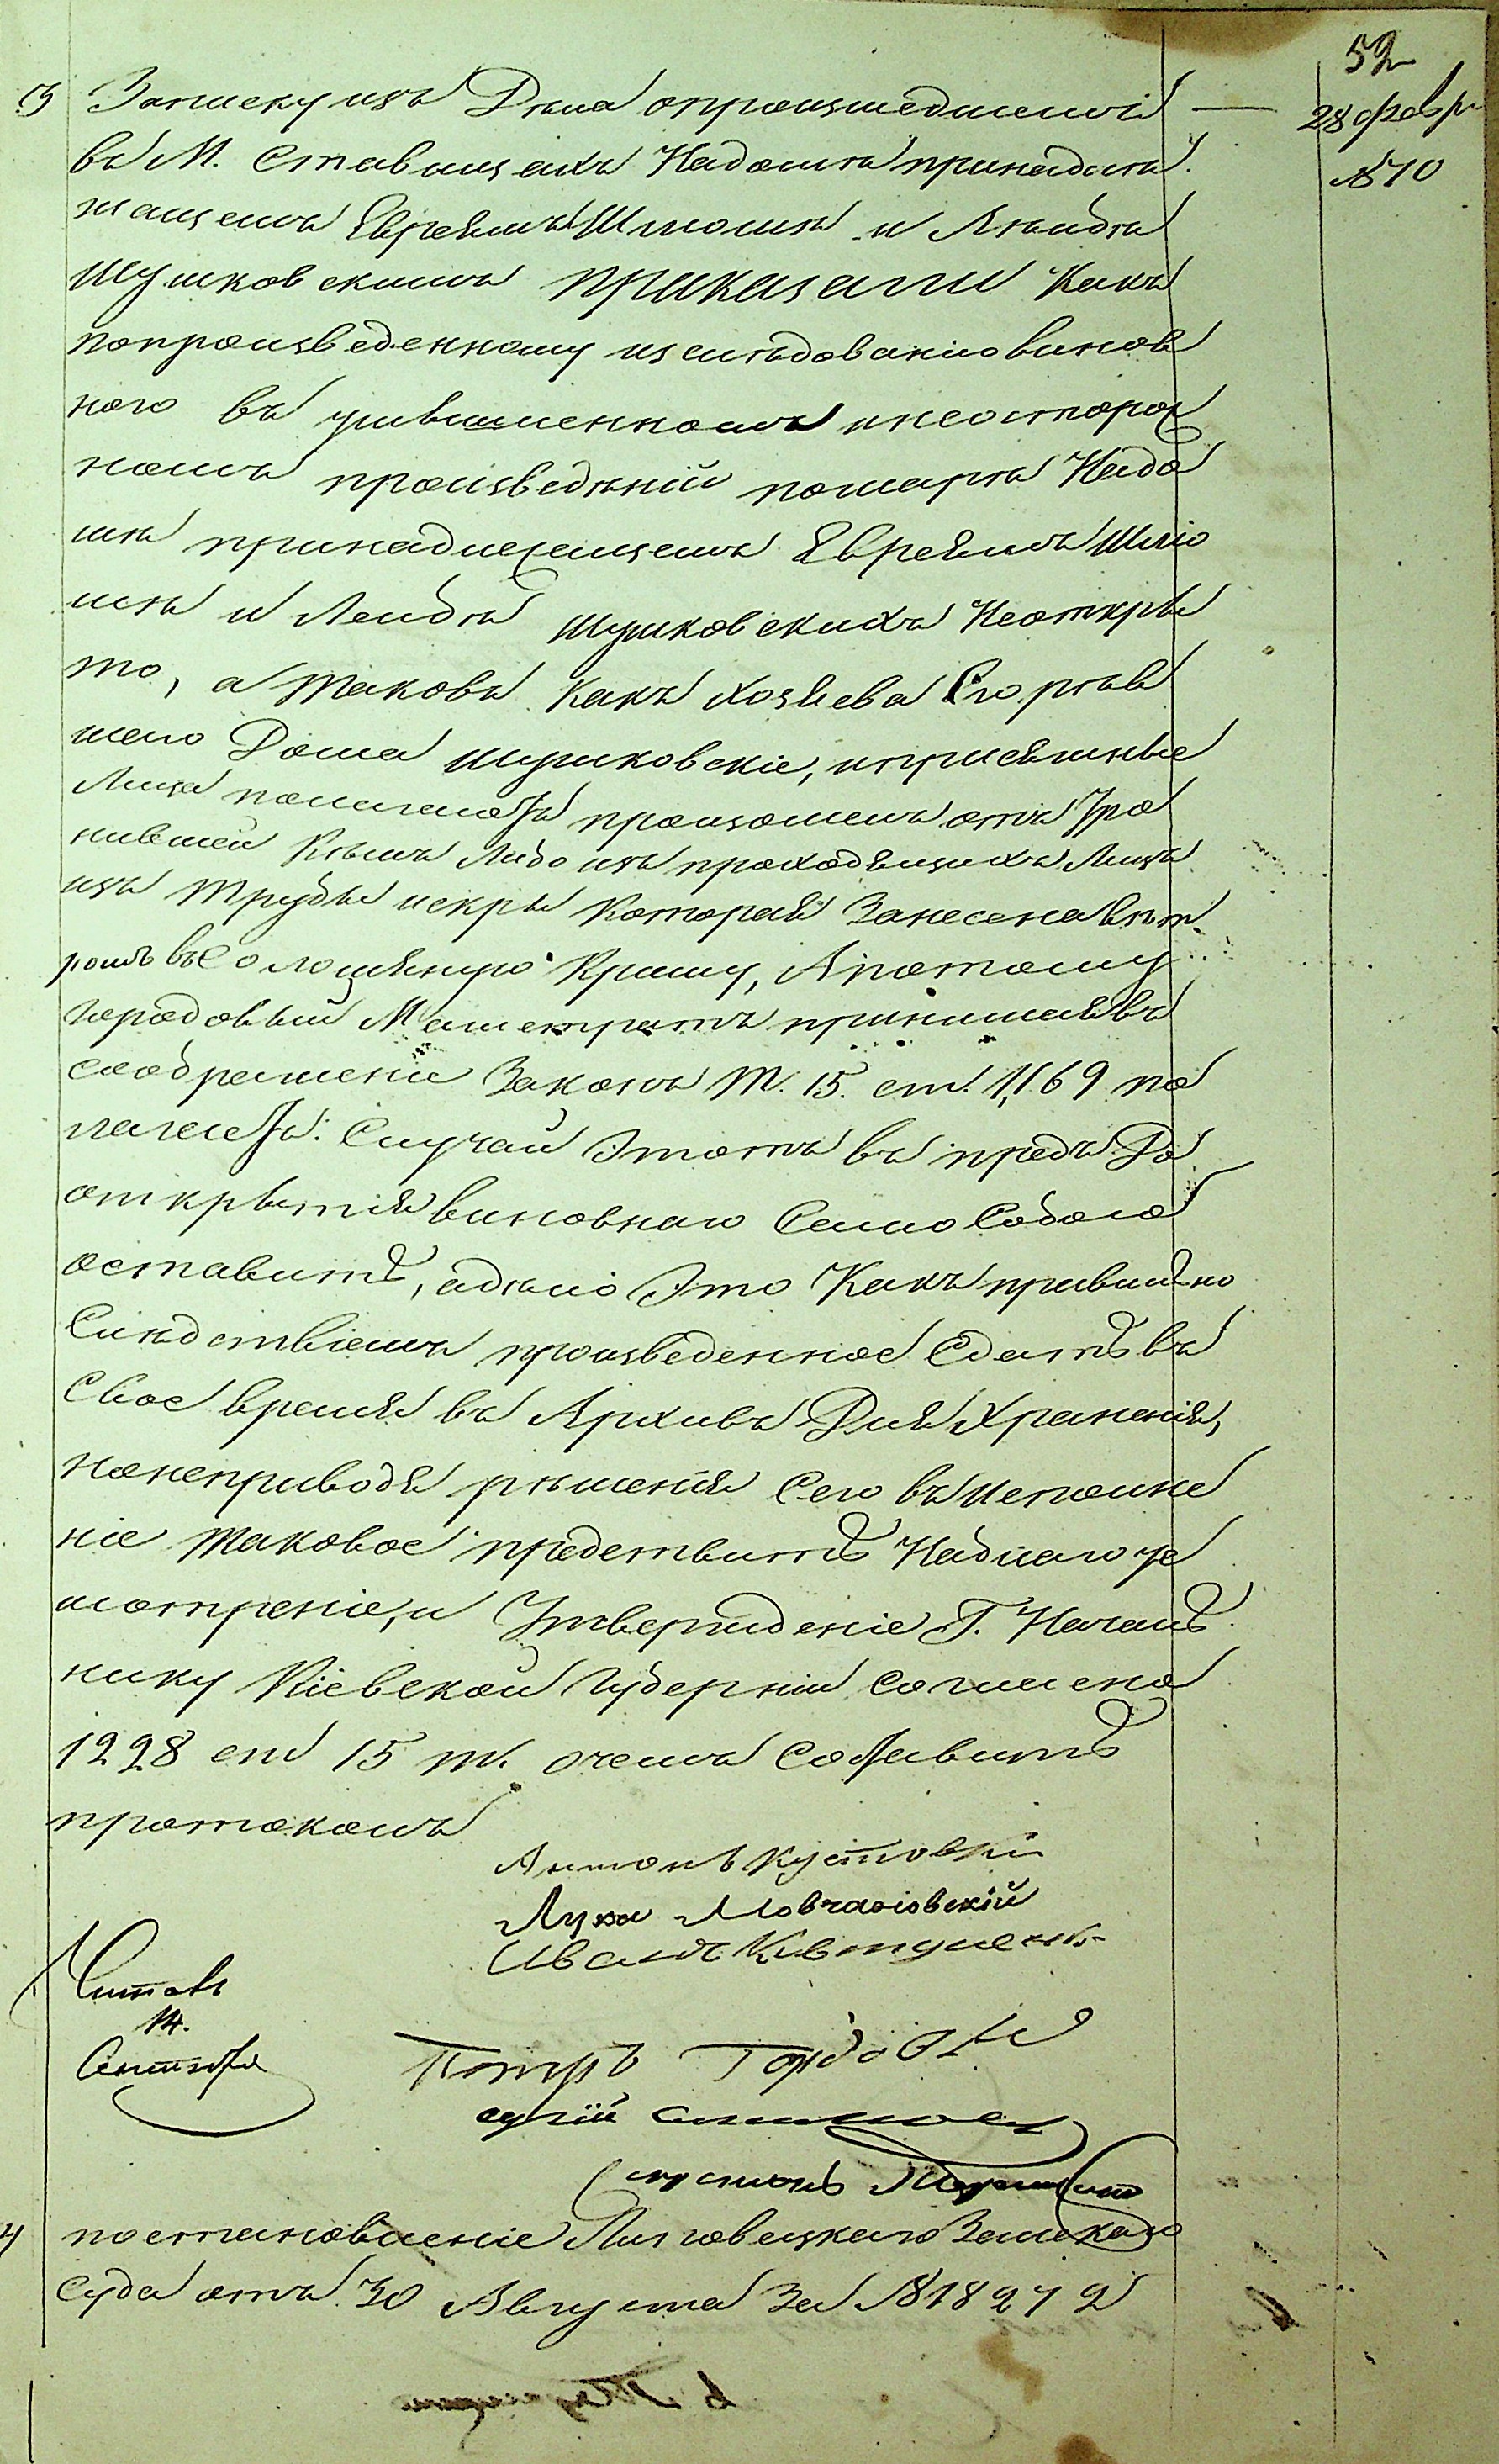 52
28 февр
№ 10
3 Записку изъ Дела опроизшедшемъ
въ М. Ставищахъ Надомъ принадлѣ
жащемъ Евреямъ Шмошѣ и Лейбѣ
Шушковскимъ приказали Какъ
попроизведенному изслѣдованію винов
ного въ умышленномъ инеосторож
номъ произведеніи пожара Надо
мѣ принадлежащемъ Евреямъ Шмо
шѣ и Лейбѣ Шушковскихъ Неоткры
то, а таковъ Какъ хозяева Сгорѣв
шего Дома Шушковскіе, иприсяжные
Лица полагаютъ произошелъ отъ Уро
нившей Кѣмъ Либо изъ проходящихъ Лицъ
изъ трубы искры которая Занесена вѣт
ромъ въ Соломянную Крышу, Апотому
Городовый Магистратъ принимая въ
соображеніе Законъ Т. 15. ст. 1,169 по
лагаетъ: Случай Этотъ въ предъ До
открытія виновнаго Само Собою
оставить, адѣло Это Какъ правильно
Слѣдствіемъ произведенное Сдать въ
Свое время въ Архивъ Для Храненія,
нонеприводя рѣшенія Сего въ исполне
ніе таковое представить Надлагоус
мотреніе, и Утвержденіе Г. Началь
нику Кіевской Губерніи согласно
1228 ст 15 т. очемъ Составить
протоколъ
Антонъ Кустовскій
Лука Мовчановскій
Иванъ Квтуненко
Читалъ
14.
Сентября
Петръ Горбовъ
постановленіе Липовецкаго Земскаго
Суда отъ 30 Августа За № 18272